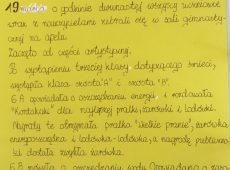 19 o godzinie dwunastej wszyscy uczniowie
wraz z nauczycielami zebrali się w sali gimnasty-
cznej na apelu.
Zaczęto od części artystycznej.
Po wystąpieniu trzeciej klasy dotyczącego śmieci,
wystąpiła klasa szósta "A" i szósta "B".
6 A opowiadała o oszczędzaniu energii i rozdawała
"Kontakciki" dla najlepszej pralki, żarówki i lodówki.
Nagrody te otrzymała pralka "Wielkie pranie", żarówka
energooszczędna i lodówka-lodówka, a nagrodę publiczno-
ści dostała zwykła żarówka.
6 B mówiła o oszczędzaniu wody. Opowiadano o